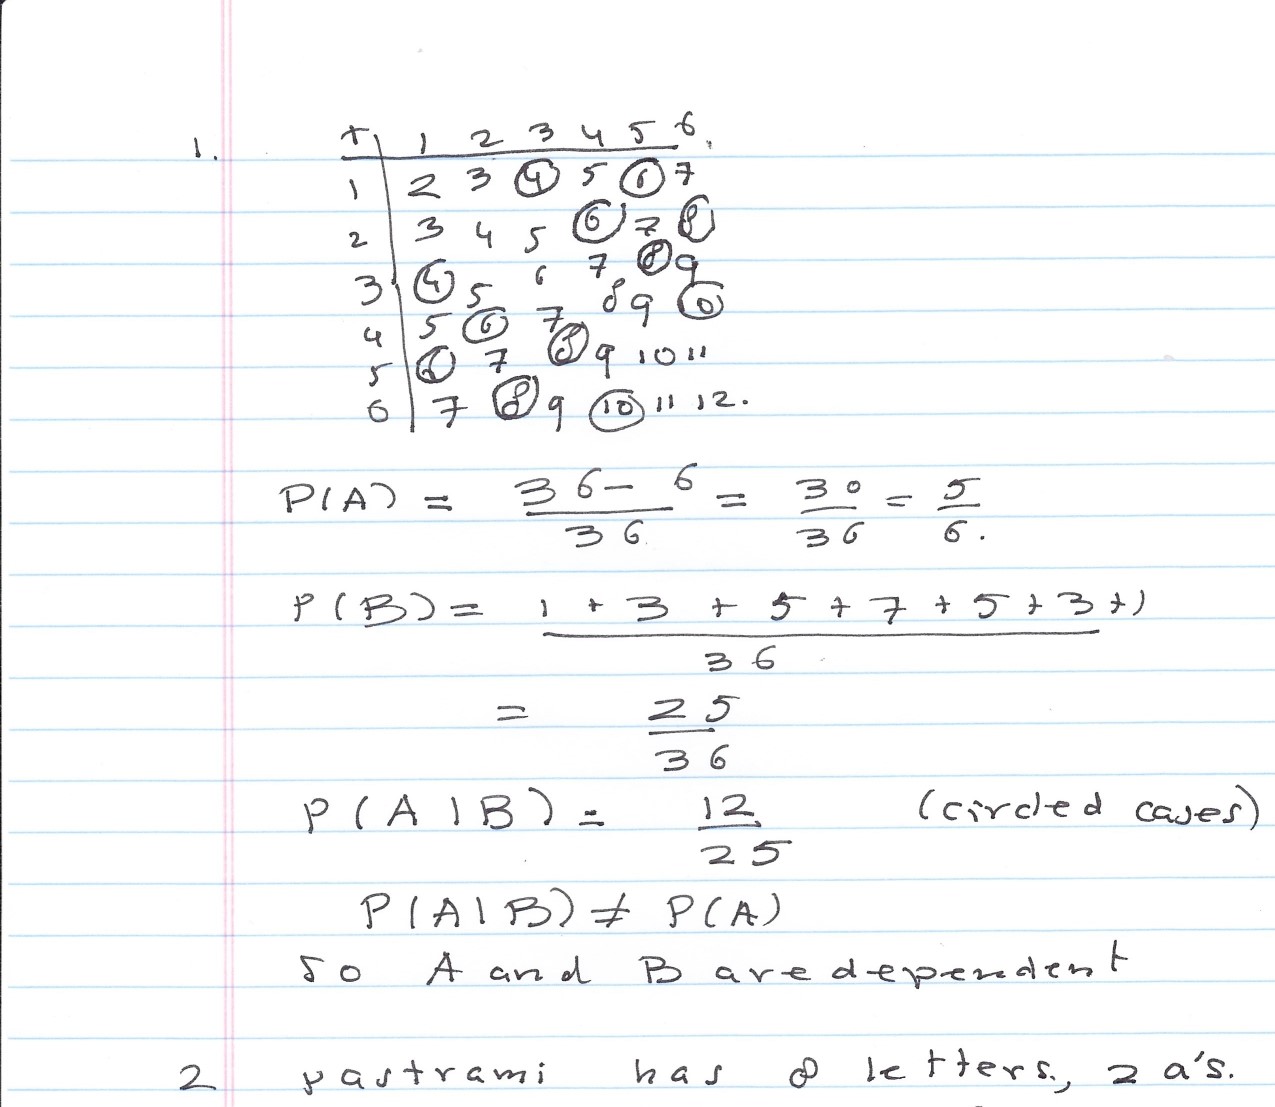 1.
+ 1 2 3 4 5 6.
1 2 3 4 5 6 7
2 3 4 5 6 7 8
3 4 5 6 7 8 9
4 5 6 7 8 9 10
5 6 7 8 9 10 11
6 7 8 9 10 11 12.
P(A) = 36-6/36 = 30/36 = 5/6.
P(B) = 1 + 3 + 5 + 7 + 5 + 3 + 1/36
= 25/36
P(A|B) = 12/25 (circled cases)
P(A|B) ≠ P(A)
so A and B are dependent
2 pastrami has 8 letters, 2 a's.